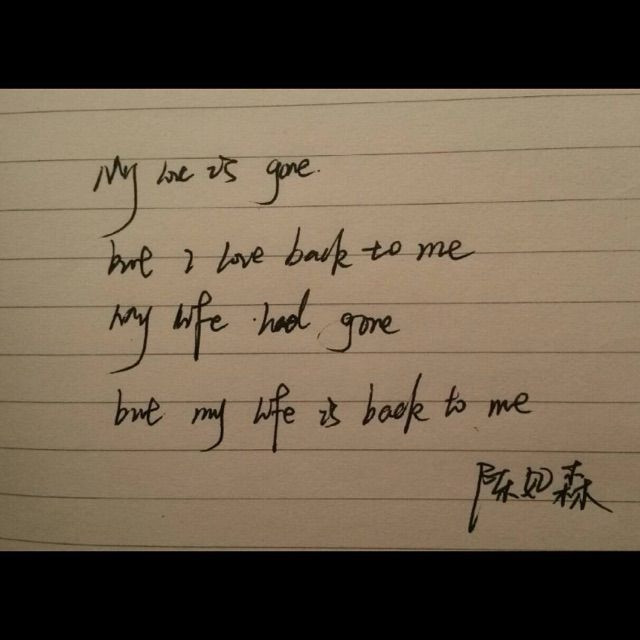 My love is gone.
but I love back to me
my life had gone
but my life is back to me
陈如森